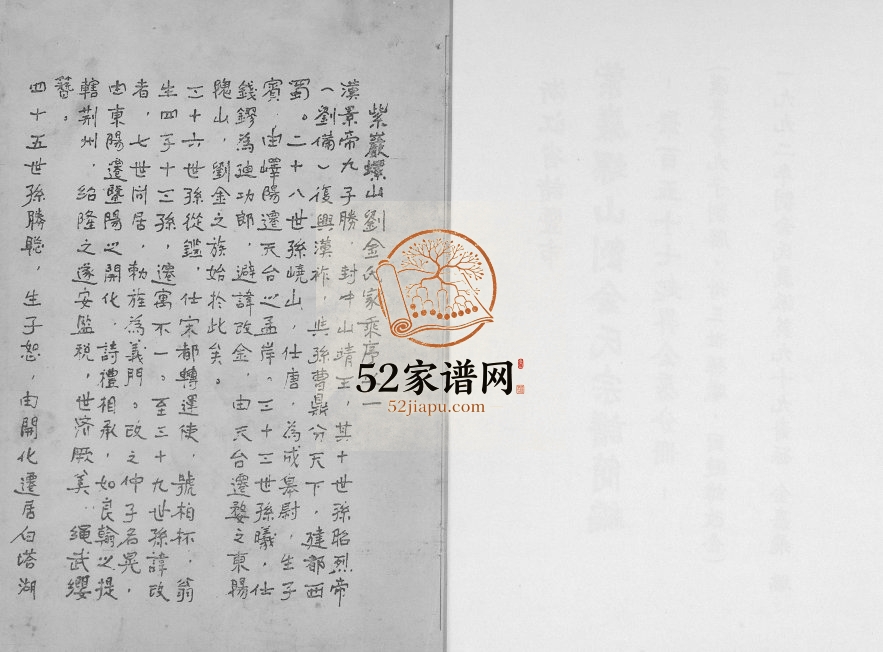 紫巖螺山劉金氏家乘序 一
漢景帝九子勝，封中山靖王，其十世孫昭烈帝
（劉備）復興漢祚，與孫曹鼎分天下，建都西
蜀。二十八世孫嶢山，仕唐，為成皋尉，生子
賓，由嶧陽遷天台之孟岸。三十三世孫曦，仕
錢鏐為迪功郎，避諱改金，由天台遷婺之東陽
槐山，劉金之族始於此矣。
三十六世孫從鑑，仕宋都轉運使，號柏林，翁
生四子十三孫，遷寓不一。至三十九世孫諱改
者，七世同居，勅旌為義門。改之仲子名晃，
由東陽遷暨陽之開化，詩禮相承，如良翰之提
轄荆州，紹隆之遂安監税，世濟厥美，繩武纓
簪。
四十五世孫勝聡，生子恕，由開化遷居白塔湖
52家谱网
52jiapu.com